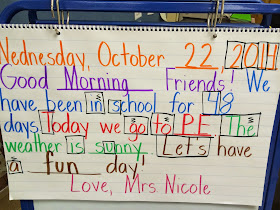 Wednesday, October 22, 2011
Good Morning Friends! We
have been in school for 48
days. Today we go to P.E. The
weather is sunny. Let's have
a fun day!
Love, Mrs Nicole